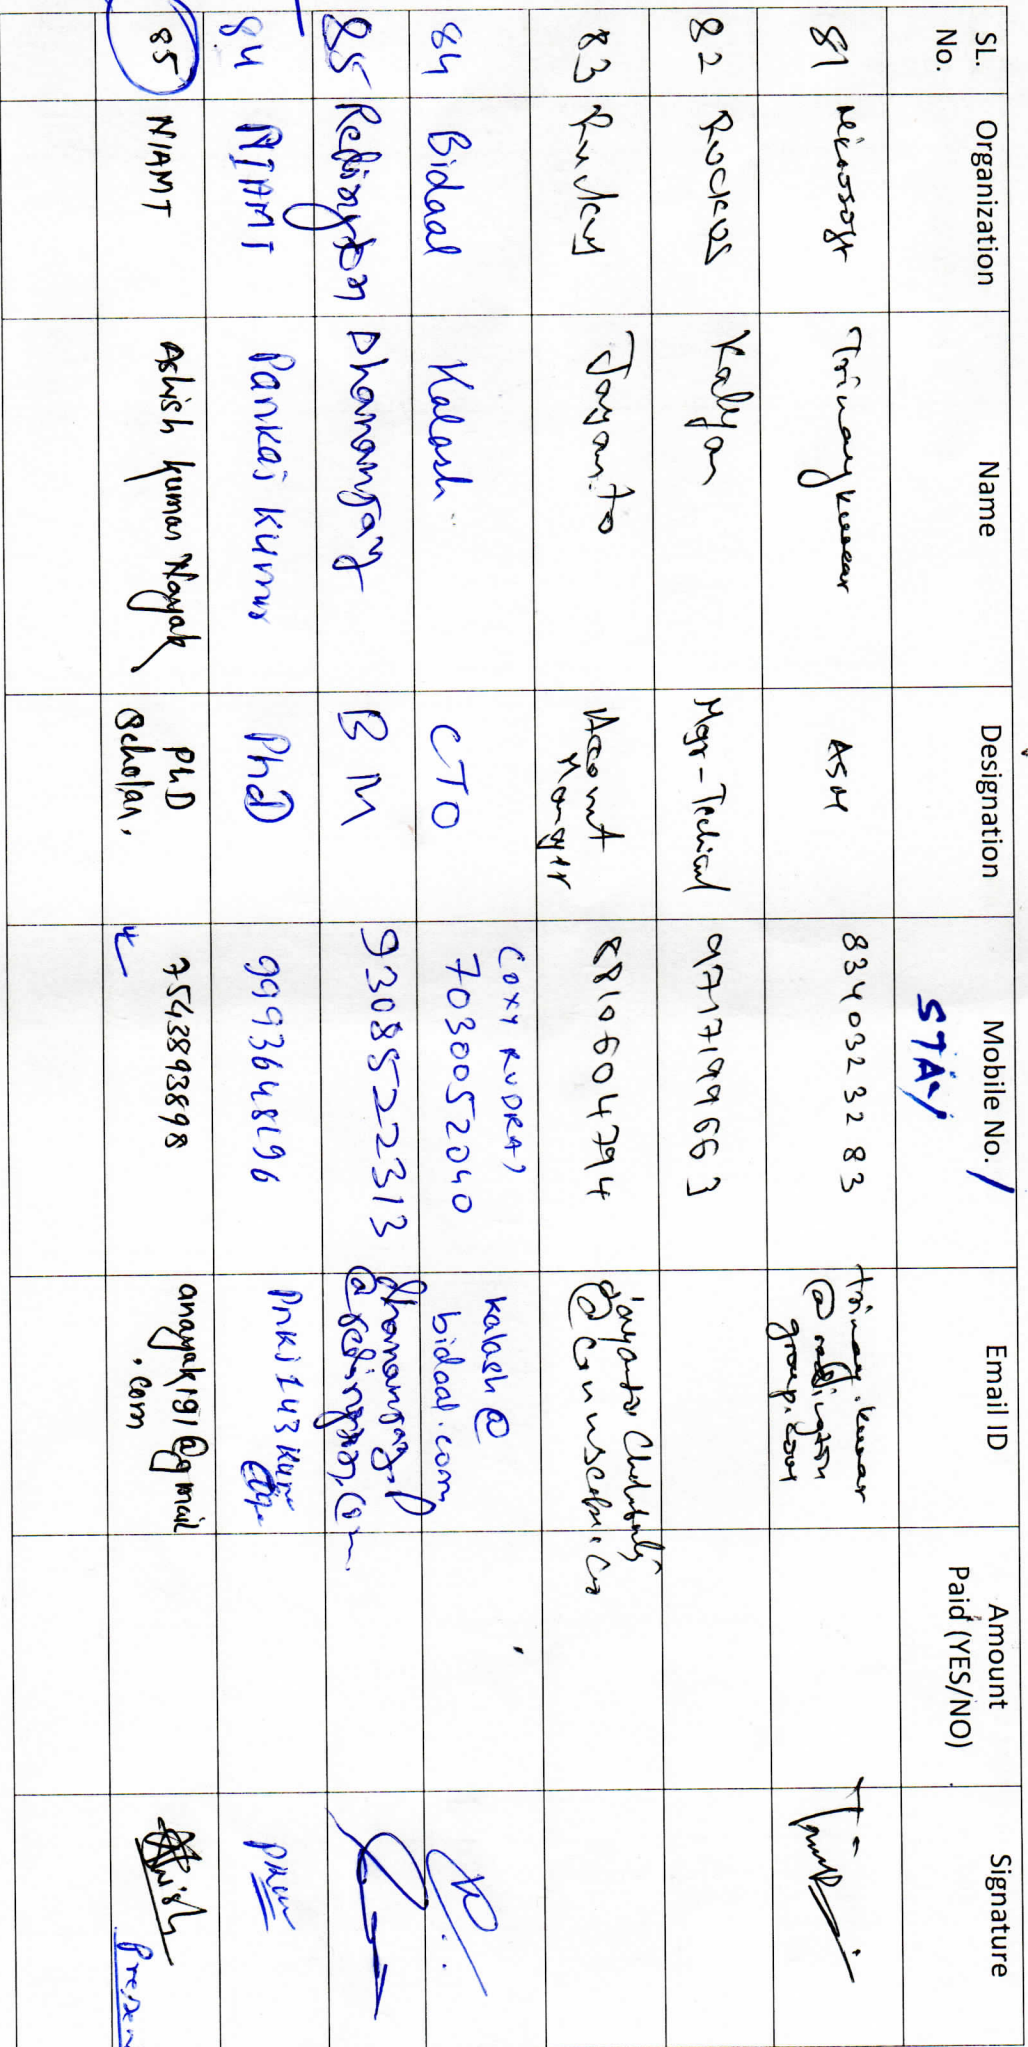 SL. No.
Organization
Name
Designation
Mobile No. /
STAy
Email ID
Amount Paid (YES/NO)
Signature
81
Microsoft
Trinay kumar
ASM
8340323283
trinay.kumar
@redington
group.com
82
Ruckus
Kalyan
Mgr-Technical
9717199663
83
Jayanta
Account
Manager
8810604794
jayanta
84
Bidaal
Kalash
CTO
(OXY RUDRA)
7030052040
kalash@
bidaal.com
85
Redington
Dhananjay
BM
9308522313
dhananjay.p
@redington.com
84
NIAMT
Pankaj Kumar
PhD
9993648196
Pnkj143kum
85
NIAMT
Ashish kumar Nayak
PhD
Scholar.
7543893898
anayak191@gmail
.com